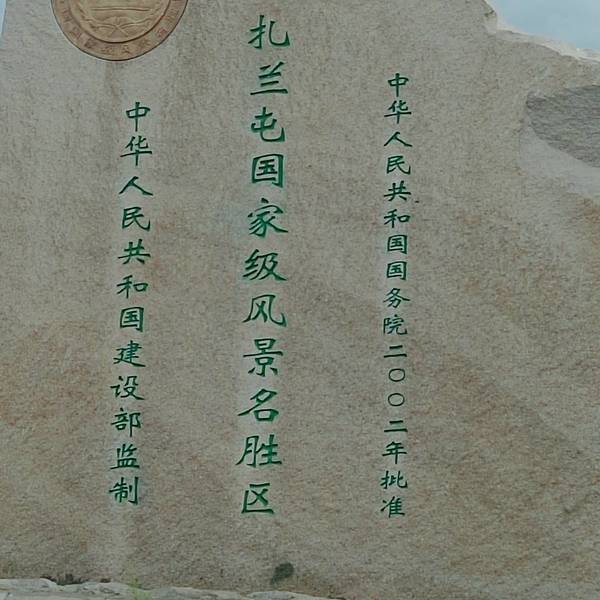 中华人民共和国国务院二〇〇二年批准
扎兰屯国家级风景名胜区
中华人民共和国建设部监制